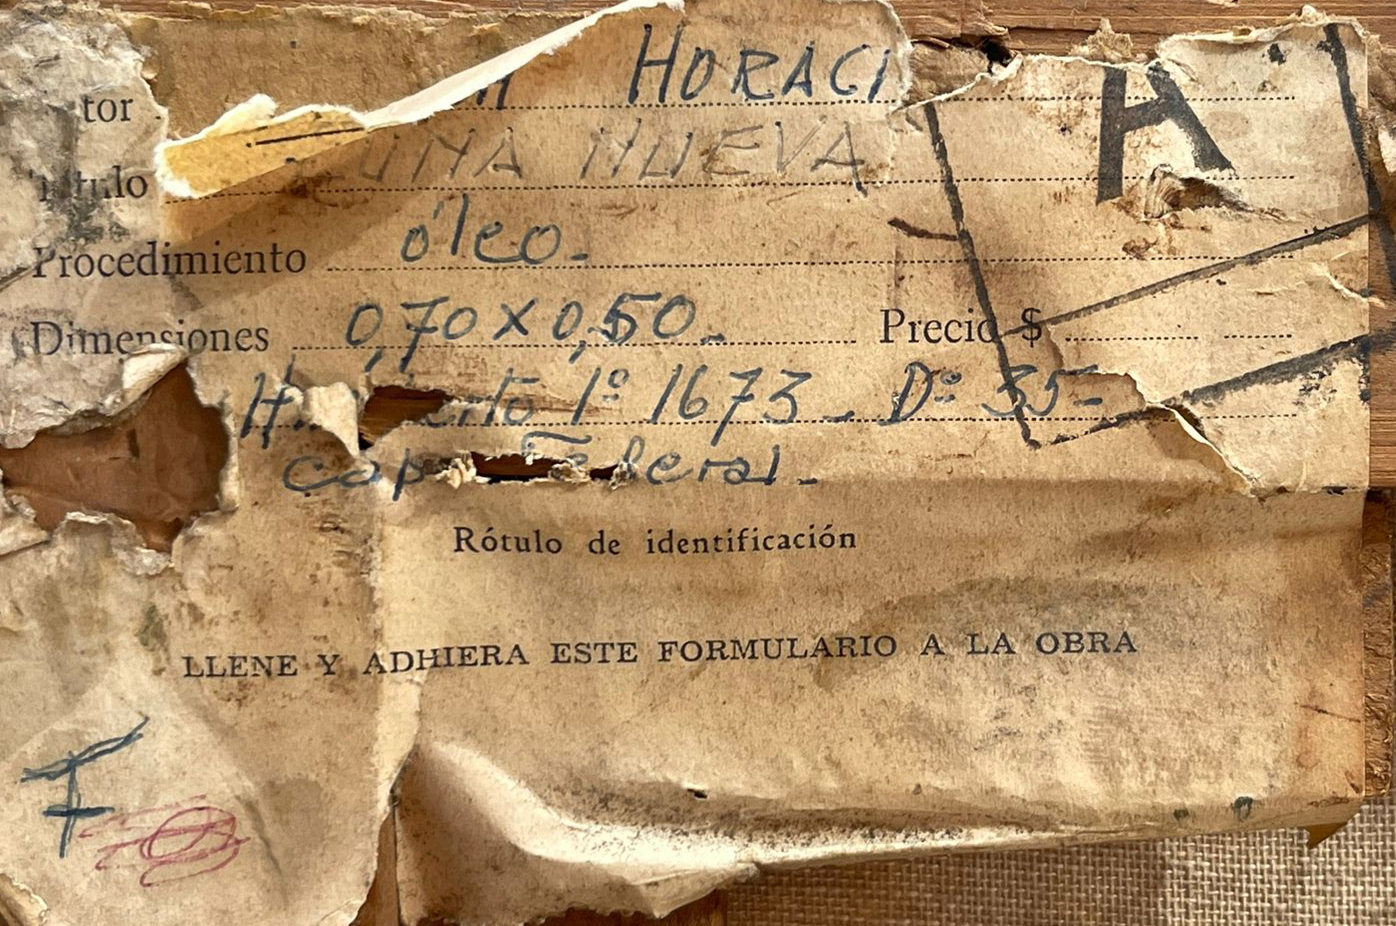 tor HORACI
LUNA NUEVA
Procedimiento óleo.-
Dimensiones 0,70 x 0,50.- Precio $
1º 1673 - Dº 35-
Rótulo de identificación
LLENE Y ADHIERA ESTE FORMULARIO A LA OBRA
F